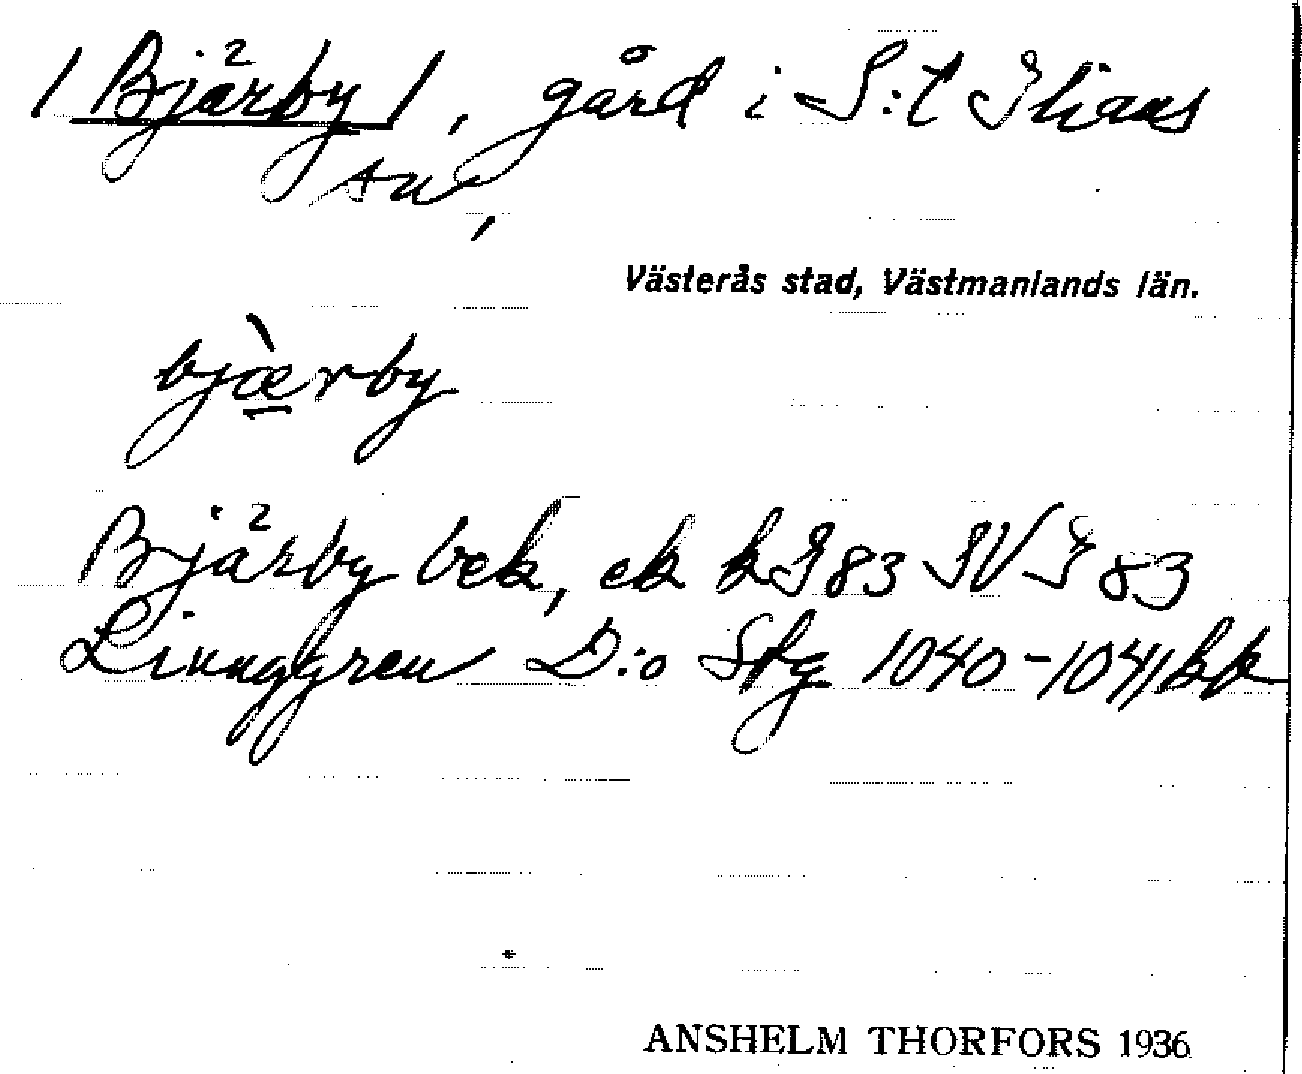 / Bjärby /, gård i S:t Ilians
sn,
Västerås stad, Västmanlands län.
bjæ̀rby
Bjärby bek, ek kI 83 IV I 83
Linnggren D:o Stg 1040-1041 hk
ANSHELM THORFORS 1936